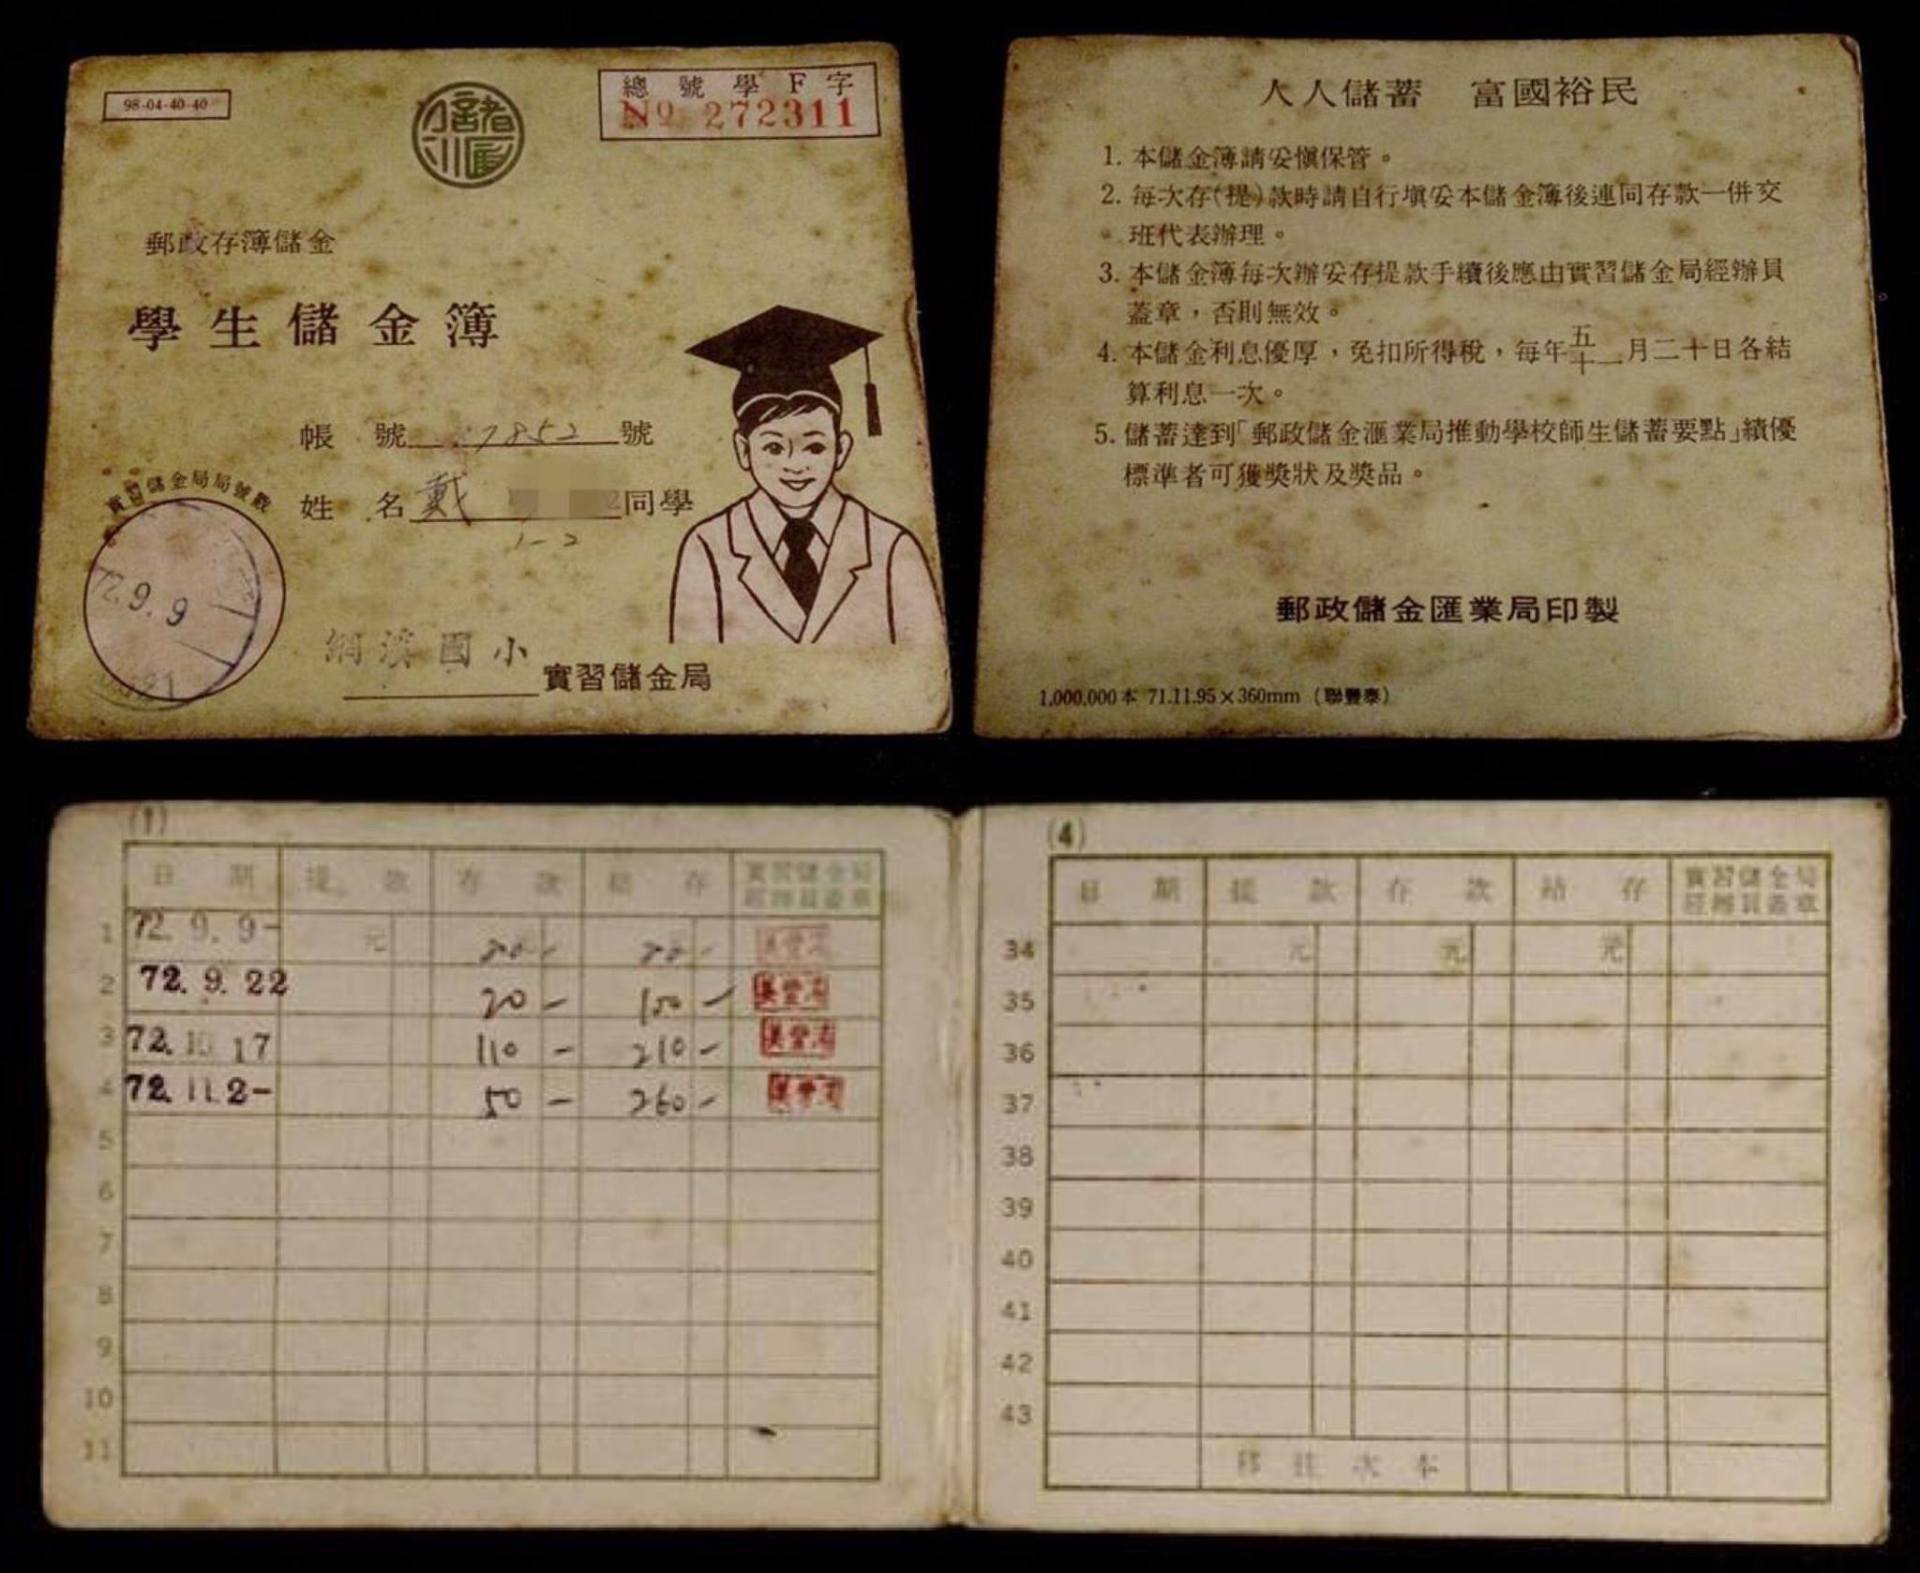 98-04-40-40
總號學F字
№ 272311
郵政存簿儲金
學生儲金簿
帳 號 7852 號
姓 名 戴 同學
1-2
實習儲金局局號戳
72.9.9
網溪國小 實習儲金局
人人儲蓄 富國裕民
1. 本儲金簿請妥慎保管。
2. 每次存(提)款時請自行填妥本儲金簿後連同存款一併交
班代表辦理。
3. 本儲金簿每次辦妥存提款手續後應由實習儲金局經辦員
蓋章，否則無效。
4. 本儲金利息優厚，免扣所得稅，每年五十二月二十日各結
算利息一次。
5. 儲蓄達到「郵政儲金滙業局推動學校師生儲蓄要點」績優
標準者可獲獎狀及獎品。
郵政儲金匯業局印製
1,000,000本 71.11.95×360mm (聯豐泰)
(1)
日期 提款 存款 結存 實習儲金局
經辦員蓋章
1 72. 9. 9- 元
2 72. 9. 22 20- 100-
3 72. 10. 17 110- 210-
4 72. 11. 2- 50- 260-
5
6
7
8
9
10
11
(4)
日期 提款 存款 結存 實習儲金局
經辦員蓋章
34 元 元 元
35
36
37
38
39
40
41
42
43
移往次本